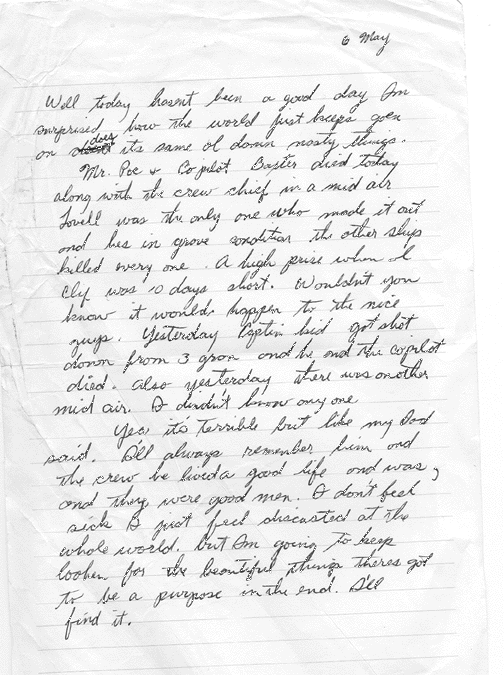 6 May
Well today hasent been a good day Im
surprised how the world just keeps goen
on does its same ol damn nasty things.
Mr. Poe + Copilot Baxter died today
along with the crew chief in a mid air
Lovell was the only one who made it out
and hes in grave condition the other ship
killed every one. A high prise when
was 10 days short. Wouldn't you
know it would happen to the nice
guys. Yesterday Captin kid got shot
down from 3 gron and he and the copilot
died. Also yesterday there was another
mid air. I didn't know any one
Yes it's terrible but like my Dad
said. I'll always remember him and
the crew he lived a good life and was,
and they were good men. I don't feel
sick I just feel discusted at the
whole world. but Im going to keep
looken for the beautiful things theres got
to be a purpose in the end. I'll
find it.